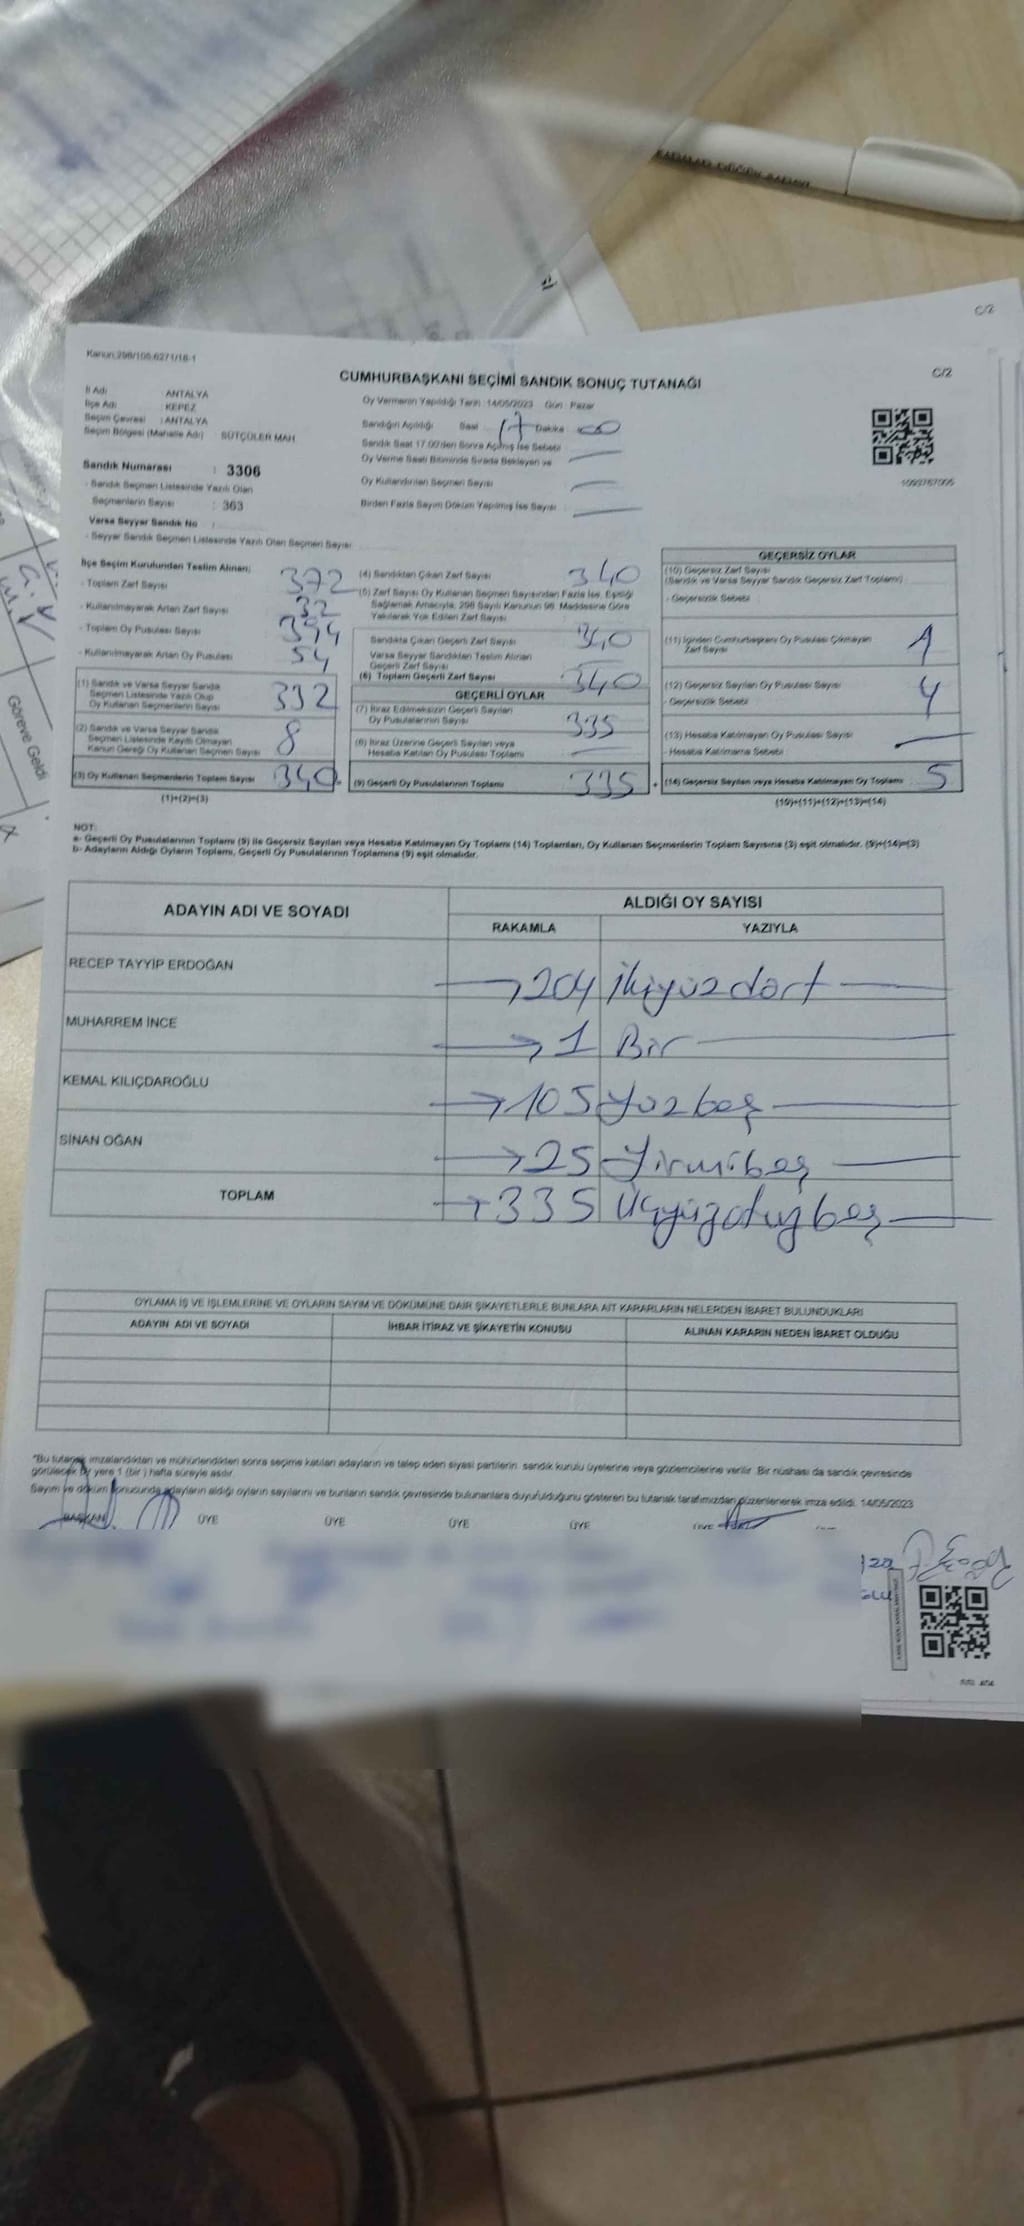 C/2
Kanun:298/105:6271/18-1
C/2
CUMHURBAŞKANI SEÇİMİ SANDIK SONUÇ TUTANAĞI
İl Adı : ANTALYA
İlçe Adı : KEPEZ
Seçim Çevresi : ANTALYA
Seçim Bölgesi (Mahalle Adı) SÜTÇÜLER MAH
Oy Vermenin Yapıldığı Tarih :14/05/2023 Gün : Pazar
Sandığın Açıldığı Saat 17 Dakika 00
Sandık Saat 17.00'den Sonra Açılmış İse Sebebi
Oy Verme Saati Bitiminde Sırada Bekleyen ve
Oy Kullandırılan Seçmen Sayısı
Birden Fazla Sayım Döküm Yapılmış İse Sayısı
1093767005
Sandık Numarası : 3306
- Sandık Seçmen Listesinde Yazılı Olan
Seçmenlerin Sayısı : 363
Varsa Seyyar Sandık No :
- Seyyar Sandık Seçmen Listesinde Yazılı Olan Seçmen Sayısı:
İlçe Seçim Kurulundan Teslim Alınan;
- Toplam Zarf Sayısı 372
- Kullanılmayarak Artan Zarf Sayısı 32
- Toplam Oy Pusulası Sayısı 394
- Kullanılmayarak Artan Oy Pusulası 54
(1) Sandık ve Varsa Seyyar Sandık
Seçmen Listesinde Yazılı Olup
Oy Kullanan Seçmenlerin Sayısı 332
(2) Sandık ve Varsa Seyyar Sandık
Seçmen Listesinde Kayıtlı Olmayan
Kanun Gereği Oy Kullanan Seçmen Sayısı 8
(3) Oy Kullanan Seçmenlerin Toplam Sayısı 340
(1)+(2)=(3)
(4) Sandıktan Çıkan Zarf Sayısı 340
(5) Zarf Sayısı Oy Kullanan Seçmen Sayısından Fazla İse, Eşitliği
Sağlamak Amacıyla, 298 Sayılı Kanunun 98. Maddesine Göre
Yakılarak Yok Edilen Zarf Sayısı
Sandıkta Çıkan Geçerli Zarf Sayısı 340
Varsa Seyyar Sandıktan Teslim Alınan
Geçerli Zarf Sayısı
(6) Toplam Geçerli Zarf Sayısı 340
GEÇERLİ OYLAR
(7) İtiraz Edilmeksizin Geçerli Sayılan
Oy Pusulalarının Sayısı 335
(8) İtiraz Üzerine Geçerli Sayılan veya
Hesaba Katılan Oy Pusulası Toplamı
(9) Geçerli Oy Pusulalarının Toplamı 335
GEÇERSİZ OYLAR
(10) Geçersiz Zarf Sayısı
(Sandık ve Varsa Seyyar Sandık Geçersiz Zarf Toplamı)
- Geçersizlik Sebebi :
(11) İçinden Cumhurbaşkanı Oy Pusulası Çıkmayan
Zarf Sayısı 1
(12) Geçersiz Sayılan Oy Pusulası Sayısı 4
- Geçersizlik Sebebi :
(13) Hesaba Katılmayan Oy Pusulası Sayısı
- Hesaba Katılmama Sebebi :
(14) Geçersiz Sayılan veya Hesaba Katılmayan Oy Toplamı 5
(10)+(11)+(12)+(13)=(14)
NOT:
a- Geçerli Oy Pusulalarının Toplamı (9) ile Geçersiz Sayılan veya Hesaba Katılmayan Oy Toplamı (14) Toplamları, Oy Kullanan Seçmenlerin Toplam Sayısına (3) eşit olmalıdır. (9)+(14)=(3)
b- Adayların Aldığı Oyların Toplamı, Geçerli Oy Pusulalarının Toplamına (9) eşit olmalıdır.
ADAYIN ADI VE SOYADI ALDIĞI OY SAYISI
RAKAMLA YAZIYLA
RECEP TAYYİP ERDOĞAN 204 İkiyüzdört
MUHARREM İNCE 1 Bir
KEMAL KILIÇDAROĞLU 105 Yüzbeş
SİNAN OĞAN 25 Yirmibeş
TOPLAM 335 Üçyüzotuzbeş
OYLAMA İŞ VE İŞLEMLERİNE VE OYLARIN SAYIM VE DÖKÜMÜNE DAİR ŞİKAYETLERLE BUNLARA AİT KARARLARIN NELERDEN İBARET BULUNDUKLARI
ADAYIN ADI VE SOYADI İHBAR İTİRAZ VE ŞİKAYETİN KONUSU ALINAN KARARIN NEDEN İBARET OLDUĞU
"Bu tutanak imzalandıktan ve mühürlendikten sonra seçime katılan adayların ve talep eden siyasi partilerin sandık kurulu üyelerine veya gözlemcilerine verilir. Bir nüshası da sandık çevresinde
görülecek bir yere 1 (bir) hafta süreyle asılır.
Sayım ve döküm sonucunda adayların aldığı oyların sayılarını ve bunların sandık çevresinde bulunanlara duyurulduğunu gösteren bu tutanak tarafımızdan düzenlenerek imza edildi. 14/05/2023
BAŞKAN ÜYE ÜYE ÜYE ÜYE ÜYE
Göreve Geldi